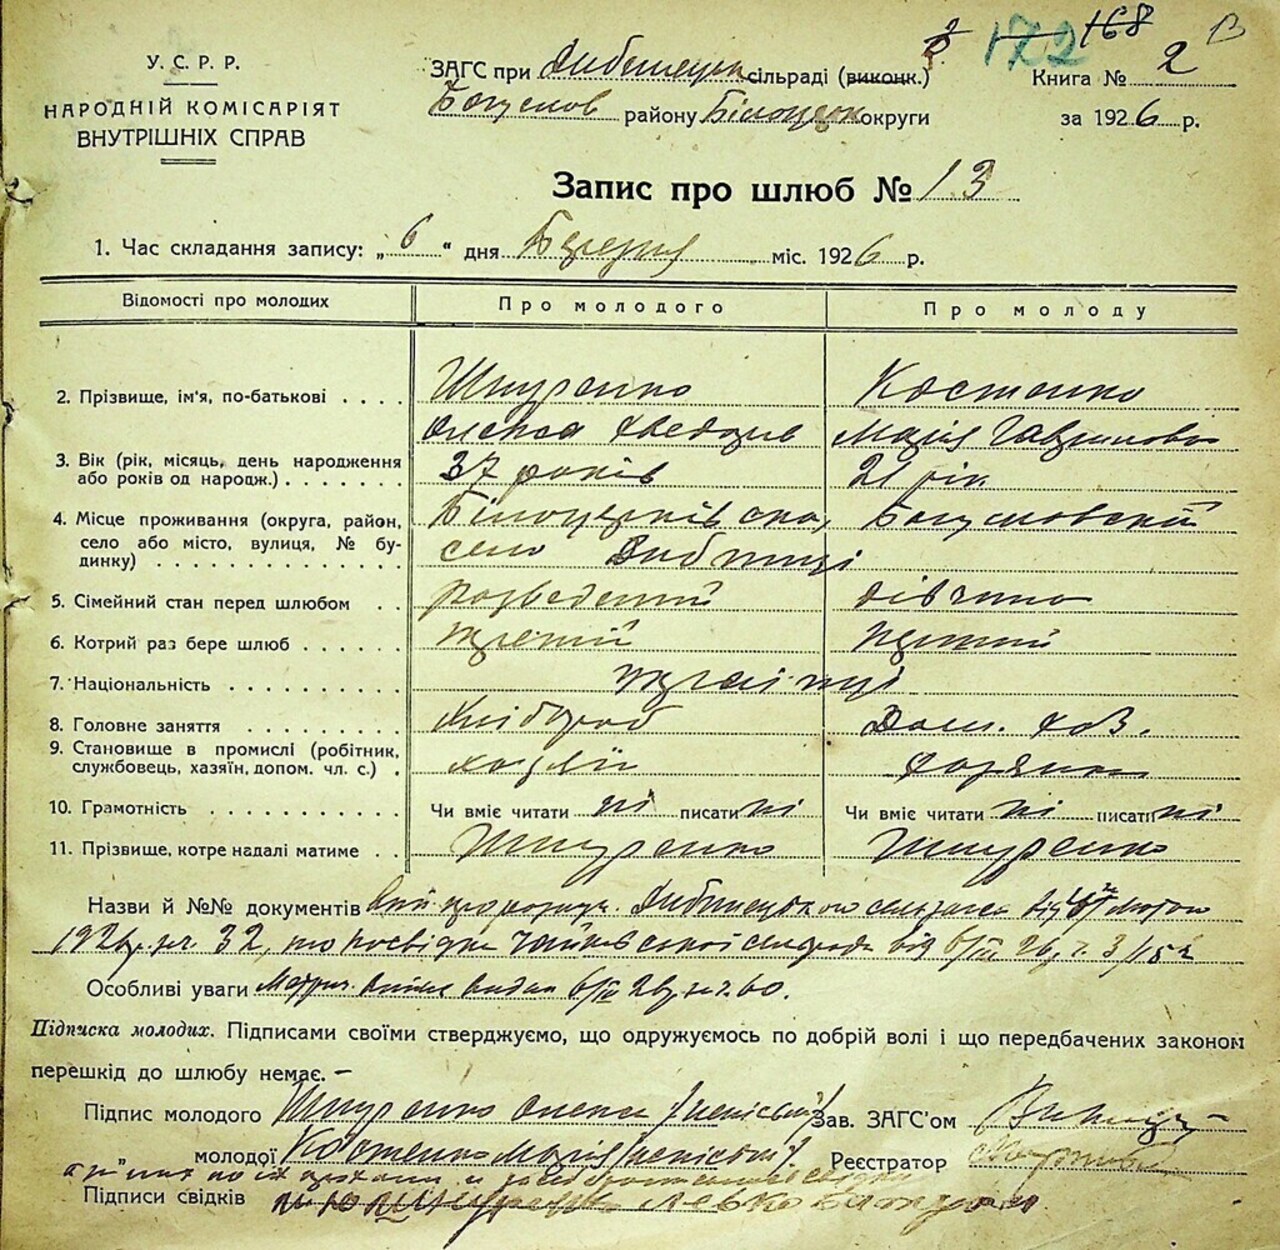 172 168 13
У. С. Р. Р.
НАРОДНІЙ КОМІСАРІЯТ
ВНУТРІШНІХ СПРАВ
ЗАГС при Дибинецьк сільраді (виконк.)
Богуслов району Білоцерк округи
Книга № 2
за 1926 р.
Запис про шлюб № 13
1. Час складання запису: „6“ дня Березня міс. 1926 р.
Відомості про молодих Про молодого Про молоду
2. Прізвище, ім'я, по-батькові . . . . Шнуренко Костенко
Олекса Хведорів Марія Гаврилова
3. Вік (рік, місяць, день народження
або років од народж.) . . . . . . . 37 років 21 рік
4. Місце проживання (округа, район,
село або місто, вулиця, № бу-
динку) . . . . . . . . . . . . . . .
Білоцерківська, Богуславский
село Дибинці
5. Сімейний стан перед шлюбом . . розведений дівчина
6. Котрий раз бере шлюб . . . . . . третій перший
7. Національність . . . . . . . . . . українці
8. Головне заняття . . . . . . . . . Хлібороб Дом. хоз.
9. Становище в промислі (робітник,
службовець, хазяїн, допом. чл. с.) . хазяїн
10. Грамотність . . . . . . . . . . . Чи вміє читати ні писати ні Чи вміє читати ні писати ні
11. Прізвище, котре надалі матиме . . Шнуренко Шнуренко
Назви й №№ документів Дибинецького сельради від лютого
192 32, та посвідка сельради від 6/III 26 3/152
Особливі уваги видан 6/III 26 № 260.
Підписка молодих. Підписами своїми стверджуємо, що одружуємось по добрій волі і що передбачених законом
перешкід до шлюбу немає. –
Підпис молодого Шнуренко Олекса /неписьм/ Зав. ЗАГС'ом
„ молодої Костенко Марія /неписьм/ Реєстратор
а за них по їх
Підписи свідків Левко